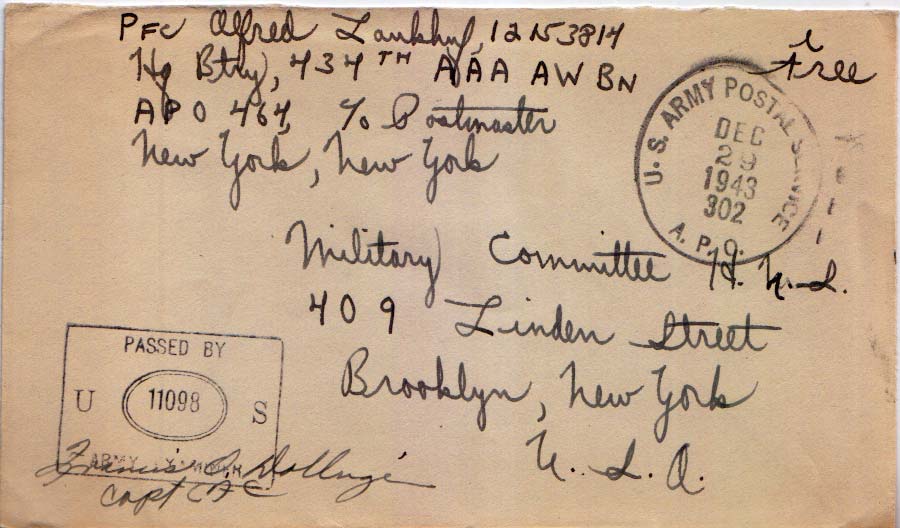 Pfc Alfred
Hq Btry, 434TH AAA AW BN
APO 464, c/o Postmaster
New York, New York
Free
U. S. ARMY POSTAL SERVICE
DEC
29
1943
302
A. P. O.
Military Committee H. N. S.
409 Linden Street
Brooklyn, New York
U. S. A.
PASSED BY
U 11098 S
ARMY EXAMINER
Francis
Capt CAC